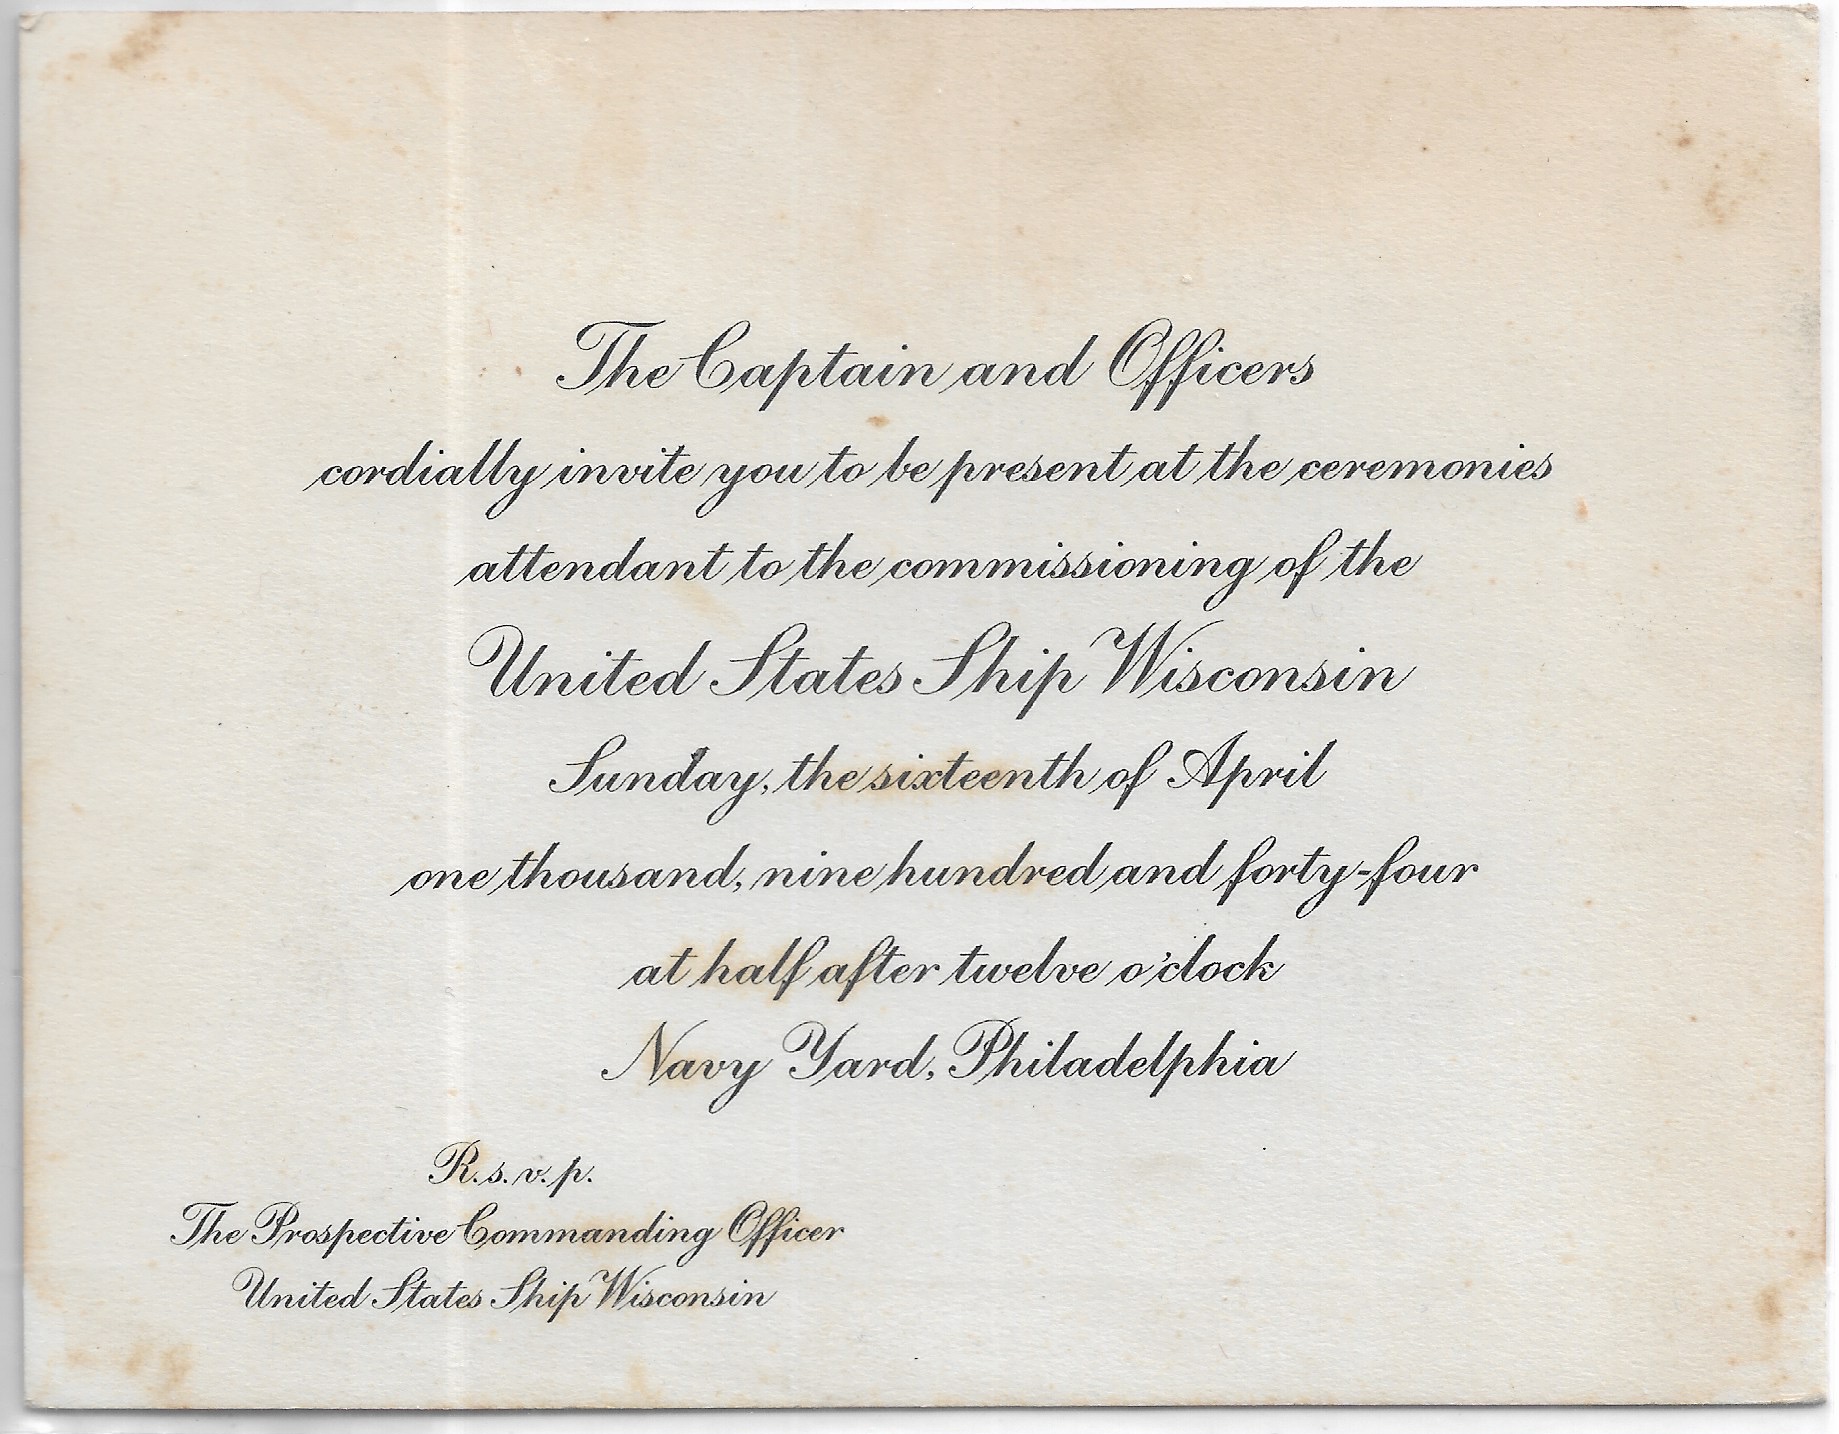 The Captain and Officers
cordially invite you to be present at the ceremonies
attendant to the commissioning of the
United States Ship Wisconsin
Sunday, the sixteenth of April
one thousand, nine hundred and forty-four
at half after twelve o'clock
Navy Yard, Philadelphia
R.s.v.p.
The Prospective Commanding Officer
United States Ship Wisconsin